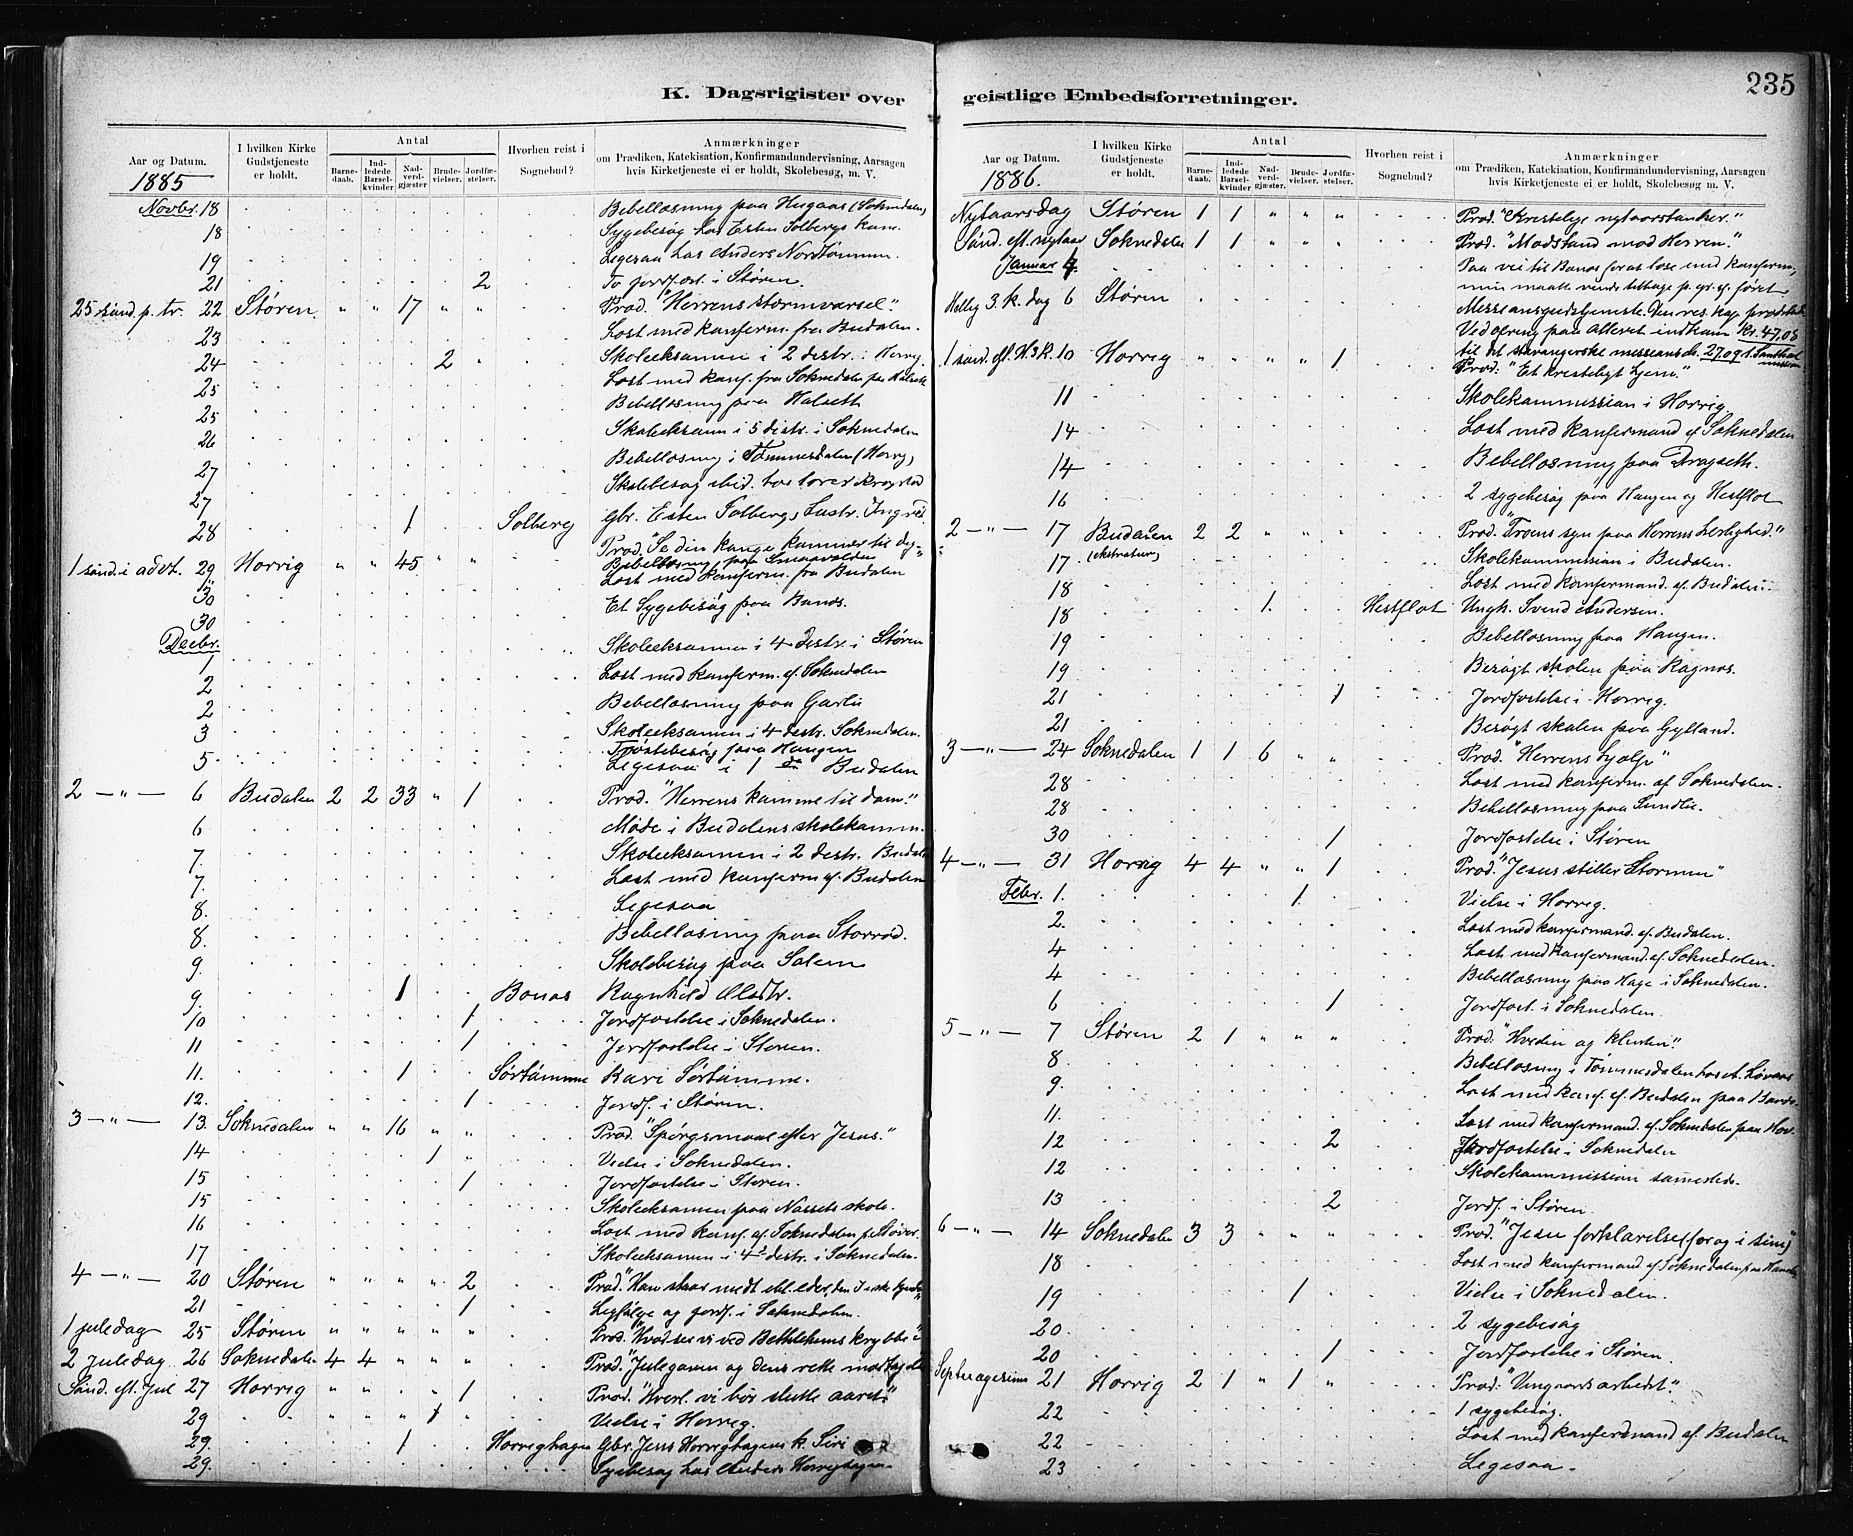 K. Dagsrigister over
Aar og Datum. I hvilken Kirke Gudstjeneste er holdt. Antal Hvorhen reist i Sognebud? Anmærkninger
om Prædiken, Katekisation, Konfirmandundervisning, Aarsagen hvis Kirketjeneste ei er holdt, Skolebesøg, m. V.
Barnedaab. Indledede Barselkvinder Nadverdgjæster. Brudevielser. Jordfæstelser.
1885
Novbr. 18 Bibellæsning paa Hugaas (Soknedalen)
18 Sygebesøg hos Esten Solbergs kone.
19 Legesaa hos Anders Nordtømme.
21 2 To jordf. i Støren.
25 sønd. p. tr. 22 Støren. " " 17 " " Præd. "Herrens stormvarsel".
23 Læst med konfirm. fra Budalen.
24 2 " Skoleeksamen i 2 distr. i Horrig
25 Læst med konf. fra Soknedalen paa Halseth
25 Bibellæsning paa Halseth
26 Skoleeksamen i 5 distr. i Soknedalen
27 Bibellæsning i Tømmesdalen (Horrig)
27 Skolebesøg ibid. hos lærer Krogstad
28 1 Solberg Gbr. Esten Solbergs Datr. Ingrid.
1 sønd. i advt. 29 Horrig " " 45 " " Præd. "Se din konge kommer til dig."
Bibellæsning paa Smaavolden
30 Læst med konfirm. fra Budalen
30 Et Sygebesøg paa Bonæs.
Decbr. 1 Skoleeksamen i 4 distr. i Støren
2 Læst med konfirm. af Soknedalen
2 Bibellæsning paa Garli
3 Skoleeksamen i 4 distr. Soknedalen.
Trøstebesøg paa Haugen
5 Legesaa i 1 Budalen
2 — " — 6 Budalen 2 2 33 " 1 Præd. "Herrens komme til dom."
6 Møde i Budalens skolekomm.
7. Skoleeksamen i 2 distr. Budalen
7. Læst med konfirm. af Budalen
8. Legesaa
8. Bibellæsning paa Storrød.
9. Skolebesøg paa Solem
9. 1 Bonæs Ragnhild Olsdtr.
10 1 Jordfæstelse i Soknedalen.
11 1 Jordfæstelse i Støren.
11. 1 Sørtømme Kari Sørtømme.
12. 1 Jordf. i Støren.
3 — " — 13. Soknedalen " " 16 " " Præd. "Spørgsmaal efter Jesus."
14 1 " Vielse i Soknedalen.
15 1 Jordfæstelse i Støren.
15 Skoleeksamen paa skole.
16 Læst med konf. af Soknedalen p. Støren
17 Skoleeksamen i 4 distr. i Soknedalen.
4 — " — 20 Støren " " " " 2 Præd. "Han staar midt bl. eder, den I ikke kjende"
21 1 Ligfølge og jordf. i Soknedalen.
1 juledag 25 Støren " " " " " Præd. "Hvad ser vi ved Bethlehems krybbe"
2 juledag 26 Soknedalen 4 4 " " " Præd. "Julegaven og dens rette modtagelse
Sønd. eft. jul 27 Horrig " " " " 1 Præd. "Hvorl. vi bør slutte aaret."
29 " " " 1 " Vielse i Horrig.
29. 1 Horrighagen Gbr. Jens Horrighagens k. Siri
29. Sygebesøg hos Anders Horrighagen

235
geistlige Embedsforretninger.
Aar og Datum. I hvilken Kirke Gudstjeneste er holdt. Antal Hvorhen reist i Sognebud? Anmærkninger
om Prædiken, Katekisation, Konfirmandundervisning, Aarsagen hvis Kirketjeneste ei er holdt, Skolebesøg, m. V.
Barnedaab. Indledede Barselkvinder Nadverdgjæster. Brudevielser. Jordfæstelser.
1886.
Nytaarsdag Støren 1 1 " " " Præd. "Kristelige nytaarstanker."
Sønd. eft. nytaar Soknedalen 1 1 " " " Præd. "Modstand mod Herren."
Januar 4. Paa vei til Bonæs for at læse med konfirm.,
men maatte vende tilbage p. gr. af føret
Hellig 3. k. dag 6 Støren Missionsgudstjeneste. Den res. kap. prædikede
Ved ofring paa alteret indkom Kr. 47,08
til det stavangerske missionsslk. 27,09 t. Santhalmission
1 sønd. eft. H3K. 10 Horrig " " " " 1 Præd. "Et kristeligt hjem."
11 Skolekommission i Horrig
14 Læst med konfirmand af Soknedalen
14 Bibellæsning paa Dragseth.
16 2 sygebesøg paa Haugen og Hestflot
2 — " — 17 Budalen 2 2 " " " Præd. "Troens syn paa Herrens herlighed."
17. (ekstratur) Skolekommission i Budalen.
18 Læst med konfirmand. af Budalen.
18 1. Hestflot Ungk. Svend Andersen.
19 Bibellæsning paa Haugen.
19 Besøgt skolen paa Ragnes.
21 1 Jordfæstelse i Horrig.
21 Besøgt skolen paa Gylland.
3 — " — 24 Soknedalen 1 1 6 " " Præd. "Herrens hjælp"
28 Læst med konfirm. af Soknedalen.
28 Bibellæsning paa Sundli.
30 1 Jordfæstelse i Støren
4 — " — 31 Horrig 4 4 " " 1 Præd. "Jesus stiller Stormen"
Febr. 1. 1 Vielse i Horrig.
2. Læst med konfirmand. af Budalen.
4 Læst med konfirmand af Soknedalen.
4 Bibellæsning paa Hage i Soknedalen.
6 1 Jordfæst. i Soknedalen.
5 — " — 7 Støren 2 1 " " " Præd. "Hveden og klinten".
8 Bibellæsning i Tømmesdalen hos
9. Læst med konf. af Budalen paa Bonæs.
11. Læst med konfirmand. af Soknedalen paa Hov.
12 2 Jordfæstelse i Soknedalen
12 Skolekommission samesteds.
13 2 Jordf. i Støren
6 — " — 14 Soknedalen 3 3 " " " Præd. "Jesu forklarelse (for og i sine)"
18 Læst med konfirmand af Soknedalen paa
19 1 Vielse i Soknedalen.
20 2 sygebesøg
20 1 Jordfæstelse i Støren.
Septuagesima 21 Horrig 2 1 " 1 " Præd. "Vingaardsarbeidet".
22 1 sygebesøg.
22 Læst med konfirmand af Budalen
23 Legesaa.